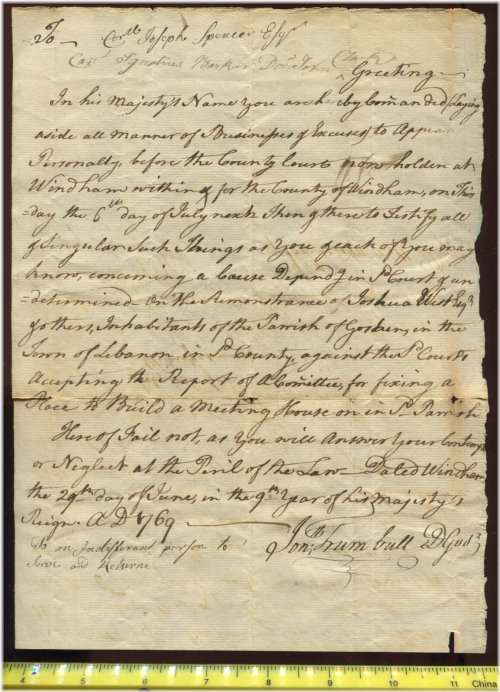 To Coll Joseph Spencer Esqr
Capt Ignatius Barker Docr John Clark
Greeting
In his Majesty's Name you are hereby Com̄anded (Laying
aside all Manner of Businesses & Excuses) to Appear
Personally, before the County Court now holden at
Windham within & for the County of Windham, on Thirs
=day the 6th day of July next then & there to Testify all
& Singular Such Things as You & each of You may
know, concerning a Cause Dependg in sd Court & un
=determined On the Remonstrance of Joshua West Esqr
& others, Inhabitants of the Parrish of Goshen, in the
Town of Lebanon in sd County, against the sd Courts
Accepting the Report of a Com̄ittee, for fixing a
Place to Build a Meeting House on in sd Parrish
Here of Fail not, as You will Answer Your Contempt
or Neglect at the Peril of the Law Dated Windham
the 29th day of June, in the 9th Year of his Majesty's
Reign. A D 1769
To an Indifferant person to
Serve and Returne
Jonth Trumbull
4 5 6 7 8 9 10 11
China